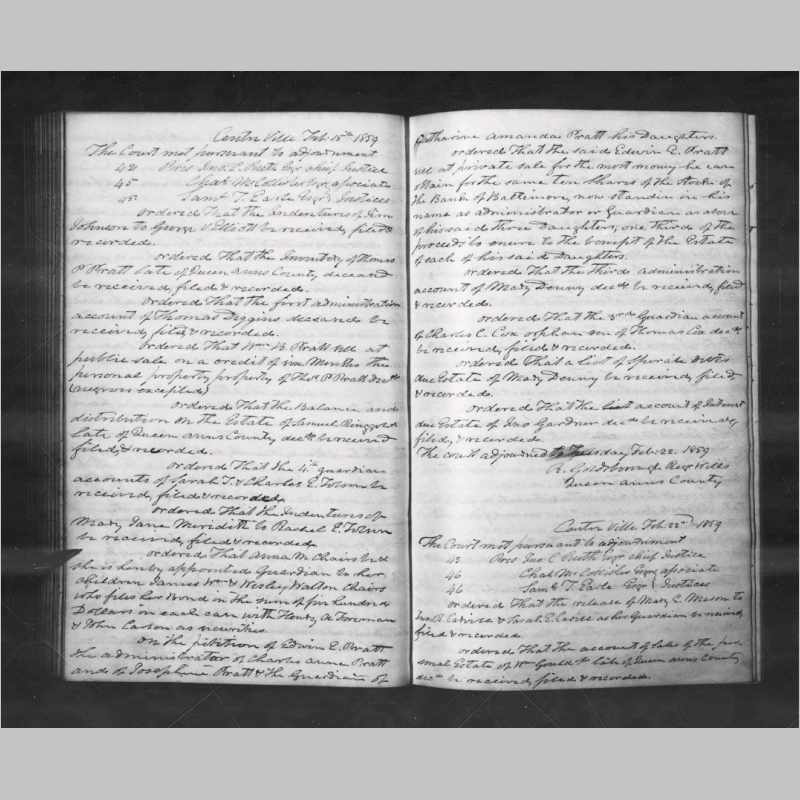 Centre Ville Feb. 15th 1859
The Court met pursuant to adjournment
42 Pres Jno. C. Ruth Esqr chief Justice
45 Chas McCollister Esqr associate
45 Saml T. Earle Esqr Justices
ordered that the Indentures of Jim
Johnson to George V Elliott be received, filed &
recorded.
ordered that the Inventory of Thomas
P. Pratt late of Queen Anns County deceased
be received, filed & recorded.
ordered that the first administration
account of Thomas Diggins deceased be
received, filed & recorded.
ordered that Wm B. Pratt sell at
public sale on a credit of six Months the
personal property property of Thos P Pratt decd
(negroes excepted)
ordered that the Balance and
distribution on the Estate of Samuel Ringgold
late of Queen Anns County decd be received
filed, & recorded.
ordered that the 4th guardian
accounts of Sarah T. & Charles E. Tolson be
received, filed & recorded.
ordered that the Indentures of
Mary Jane Meridith to Rachel E. Tolson
be received, filed & recorded.
ordered that Anna M. Chairs be &
she is hereby appointed Guardian to her
children James Wm & Wesley Walton Chairs
who files her Bond in the sum of five hundred
Dollars in each case with Henry A. Foreman
& John Carson as securities
On the petition of Edwin E. Pratt
the administrator of Charles Pratt
and of Josephine Pratt & the Guardian of
Catharine Amanda Pratt his Daughters.
ordered that the said Edwin E. Pratt
sell at private sale for the most money he can
obtain for the same ten shares of the stock of
the Bank of Baltimore, now standin in his
name as administrator or Guardian as above
of his said three Daughters, one third of the
proceeds to enure to the benefit of the Estate
of each of his said Daughters.
ordered that the third administration
account of Mary Denny decd be received, filed
& recorded.
ordered that the Guardian account
of Charles C. Cox orphan son of Thomas Cox decd
be received, filed & recorded.
ordered that a list of Sperate Debts
due Estate of Mary Denny be received, filed
& recorded.
ordered that the account of Interest
due Estate of Jas Gardner decd be received,
filed, & recorded.
The court adjourned to Tuesday Feb. 22. 1859
R. Goldsborough Regr Wills
Queen Anns County
Centre Ville Feb. 22nd 1859
The Court met pursuant to adjournment
42 Pres Jno C. Ruth Esqr chief Justice
46 Chas McCollister Esqr associate
46 Saml T. Earle Esqr Justices
ordered that the release of Mary E. Mason to
& Sarah E. as her Guardian be received,
filed & recorded.
ordered that the account of Sales of the per
sonal Estate of Wm Gould late of Queen Anns County
decd be received, filed & recorded.